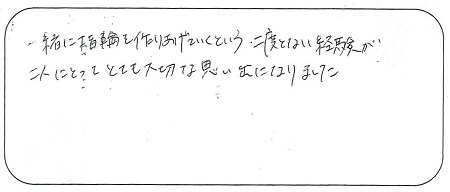 一緒に指輪を作りあげていくという二度とない経験が
二人にとってとても大切な思い出になりました